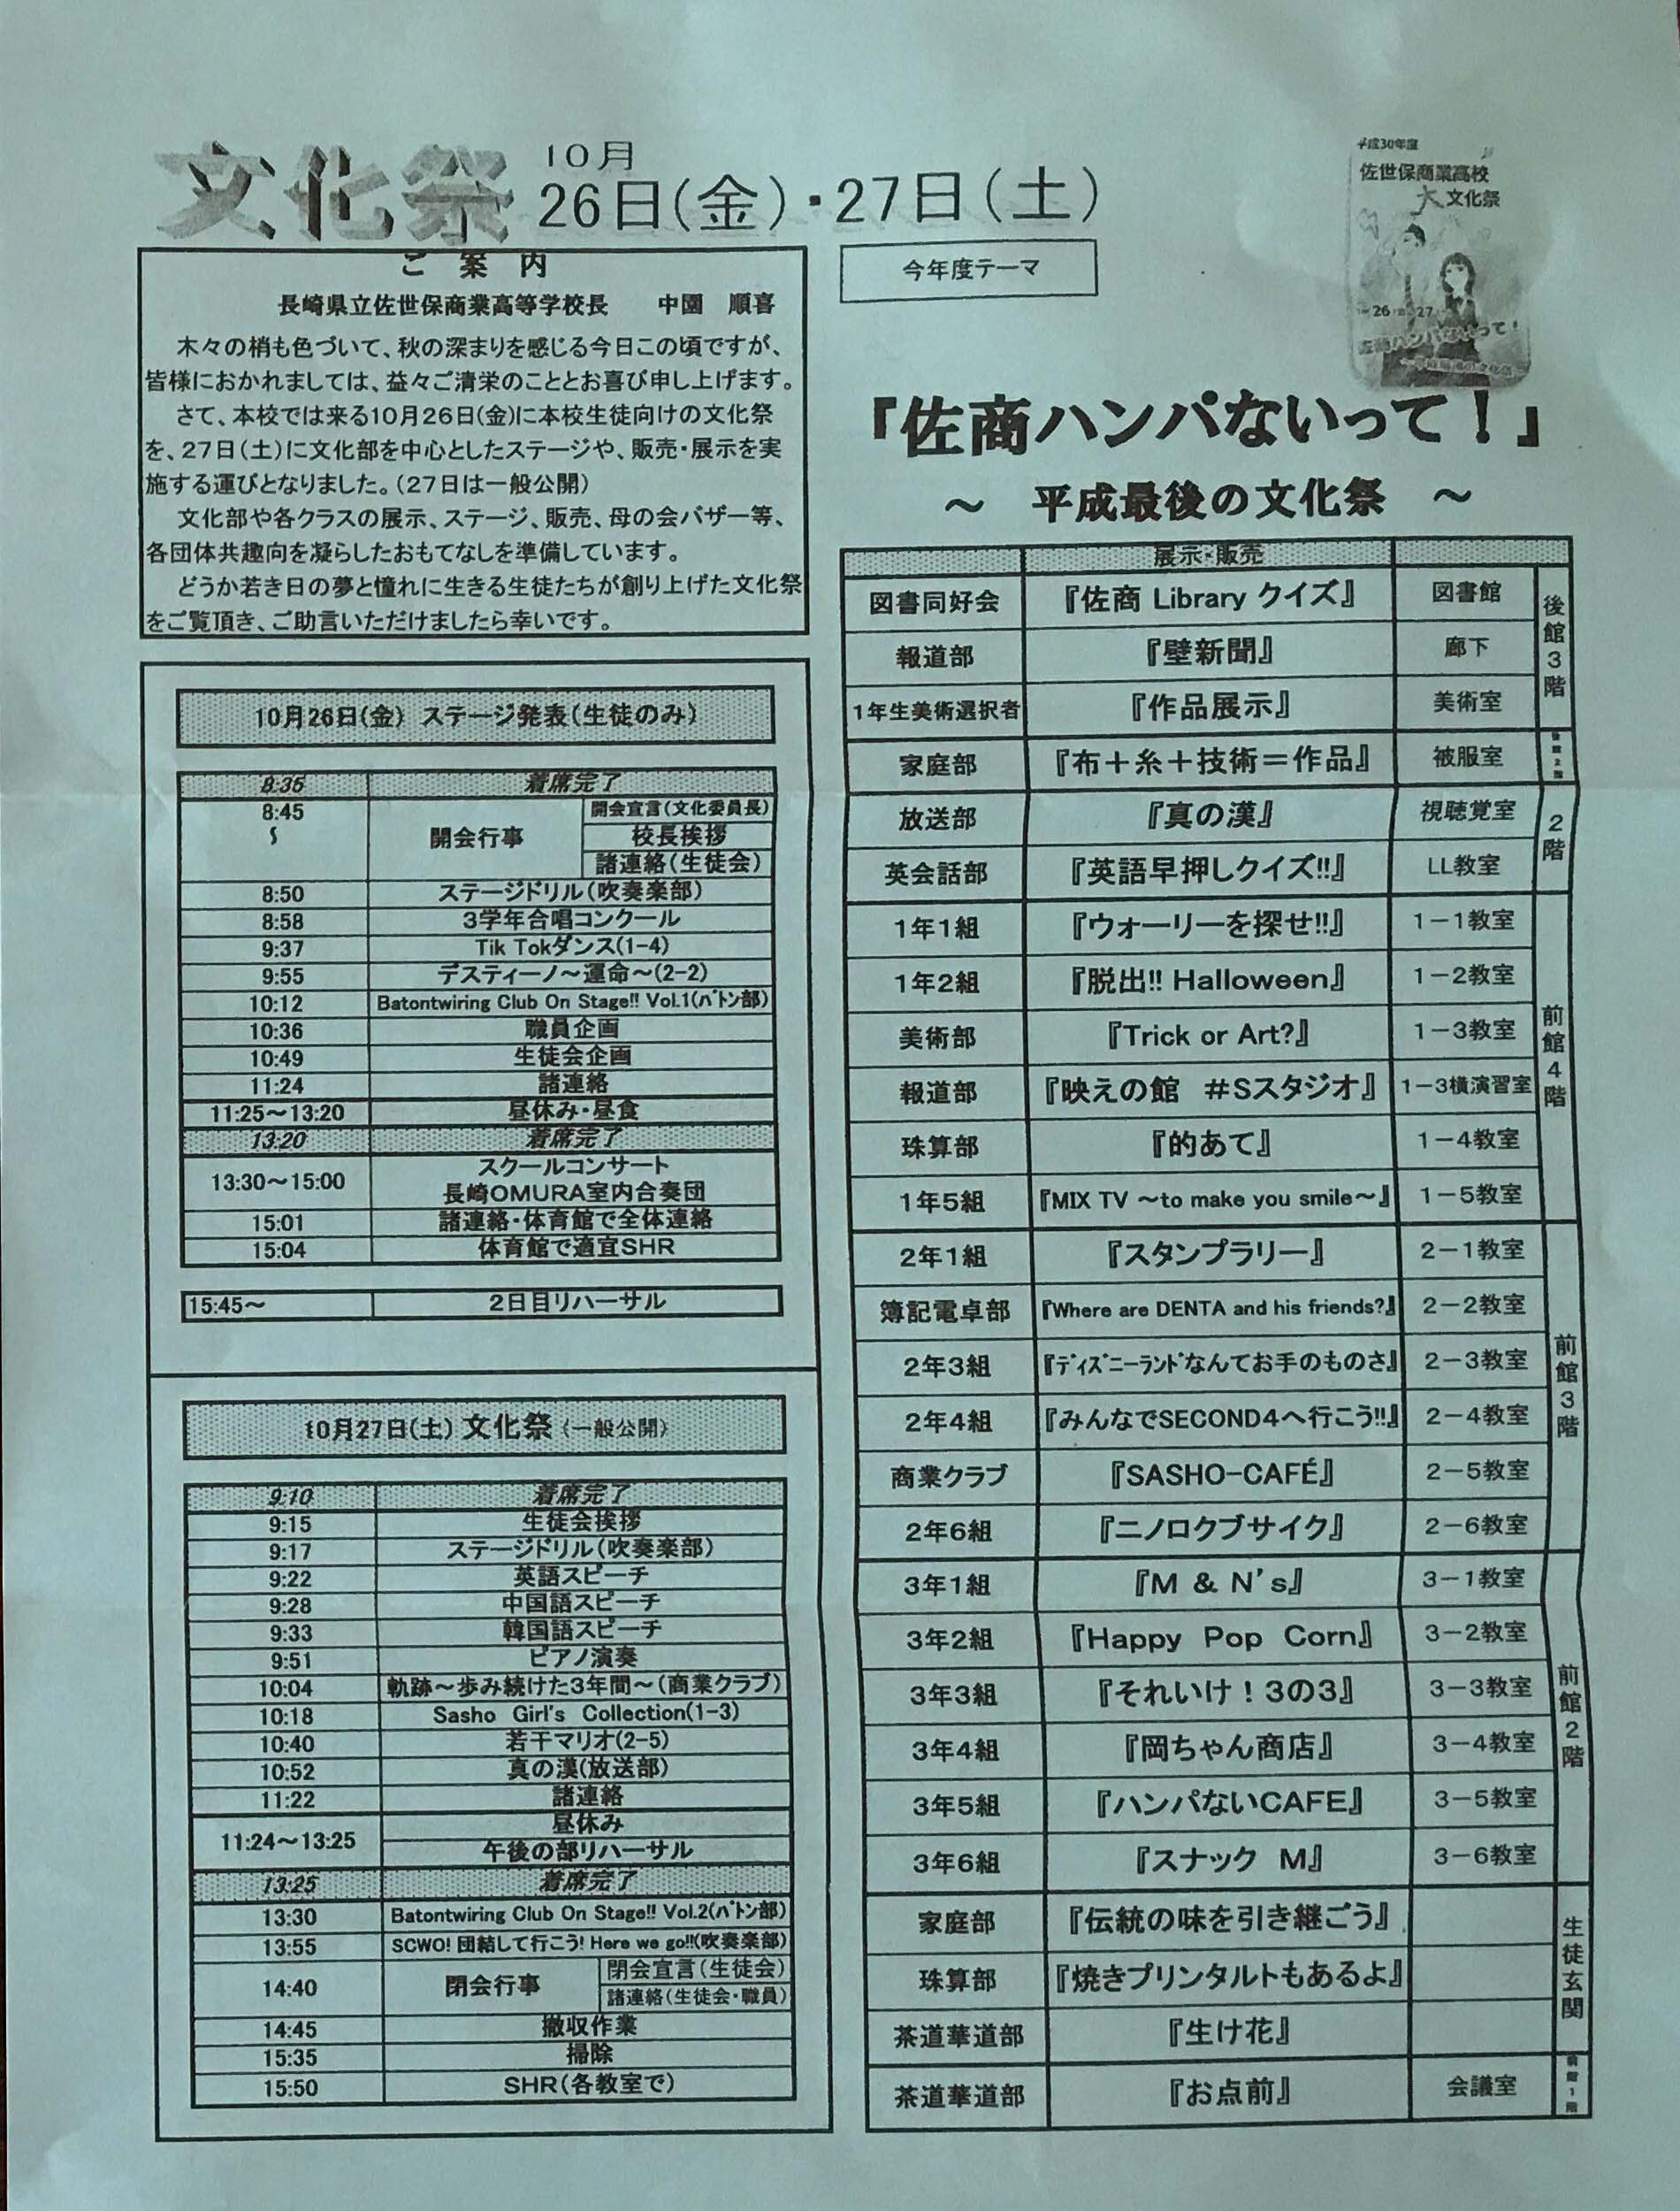 文化祭 10月
26日(金)・27日(土)
平成30年度
佐世保商業高校
大文化祭
26 27
佐商ハンパないって!
ご 案 内
長崎県立佐世保商業高等学校長 中園 順喜
木々の梢も色づいて、秋の深まりを感じる今日この頃ですが、
皆様におかれましては、益々ご清栄のこととお喜び申し上げます。
さて、本校では来る10月26日(金)に本校生徒向けの文化祭
を、27日(土)に文化部を中心としたステージや、販売・展示を実
施する運びとなりました。(27日は一般公開)
文化部や各クラスの展示、ステージ、販売、母の会バザー等、
各団体共趣向を凝らしたおもてなしを準備しています。
どうか若き日の夢と憧れに生きる生徒たちが創り上げた文化祭
をご覧頂き、ご助言いただけましたら幸いです。
10月26日(金) ステージ発表(生徒のみ)
8:35 着席完了
8:45 ～ 開会行事 開会宣言(文化委員長)
校長挨拶
諸連絡(生徒会)
8:50 ステージドリル(吹奏楽部)
8:58 3学年合唱コンクール
9:37 Tik Tokダンス(1-4)
9:55 デスティーノ～運命～(2-2)
10:12 Batontwiring Club On Stage!! Vol.1(バトン部)
10:36 職員企画
10:49 生徒会企画
11:24 諸連絡
11:25～13:20 昼休み・昼食
13:20 着席完了
13:30～15:00 スクールコンサート
長崎OMURA室内合奏団
15:01 諸連絡・体育館で全体連絡
15:04 体育館で適宜SHR
15:45～ 2日目リハーサル
10月27日(土) 文化祭 (一般公開)
9:10 着席完了
9:15 生徒会挨拶
9:17 ステージドリル(吹奏楽部)
9:22 英語スピーチ
9:28 中国語スピーチ
9:33 韓国語スピーチ
9:51 ピアノ演奏
10:04 軌跡～歩み続けた3年間～(商業クラブ)
10:18 Sasho Girl's Collection(1-3)
10:40 若干マリオ(2-5)
10:52 真の漢(放送部)
11:22 諸連絡
11:24～13:25 昼休み
午後の部リハーサル
13:25 着席完了
13:30 Batontwiring Club On Stage!! Vol.2(バトン部)
13:55 SCWO! 団結して行こう! Here we go!!(吹奏楽部)
14:40 閉会行事 閉会宣言(生徒会)
諸連絡(生徒会・職員)
14:45 撤収作業
15:35 掃除
15:50 SHR(各教室で)
今年度テーマ
『佐商ハンパないって!』
～ 平成最後の文化祭 ～
展示・販売
図書同好会 『佐商 Library クイズ』 図書館 後館3階
報道部 『壁新聞』 廊下
1年生美術選択者 『作品展示』 美術室
家庭部 『布＋糸＋技術＝作品』 被服室 後館2階
放送部 『真の漢』 視聴覚室 2階
英会話部 『英語早押しクイズ!!』 LL教室
1年1組 『ウォーリーを探せ!!』 1－1教室 前館4階
1年2組 『脱出!! Halloween』 1－2教室
美術部 『Trick or Art?』 1－3教室
報道部 『映えの館 #Sスタジオ』 1－3横演習室
珠算部 『的あて』 1－4教室
1年5組 『MIX TV ～to make you smile～』 1－5教室
2年1組 『スタンプラリー』 2－1教室 前館3階
簿記電卓部 『Where are DENTA and his friends?』 2－2教室
2年3組 『ディズニーランドなんてお手のものさ』 2－3教室
2年4組 『みんなでSECOND4へ行こう!!』 2－4教室
商業クラブ 『SASHO-CAFÉ』 2－5教室
2年6組 『ニノロクブサイク』 2－6教室
3年1組 『M & N's』 3－1教室 前館2階
3年2組 『Happy Pop Corn』 3－2教室
3年3組 『それいけ！3の3』 3－3教室
3年4組 『岡ちゃん商店』 3－4教室
3年5組 『ハンパないCAFE』 3－5教室
3年6組 『スナック M』 3－6教室
家庭部 『伝統の味を引き継ごう』 生徒玄関
珠算部 『焼きプリンタルトもあるよ』
茶道華道部 『生け花』
茶道華道部 『お点前』 会議室 前館1階